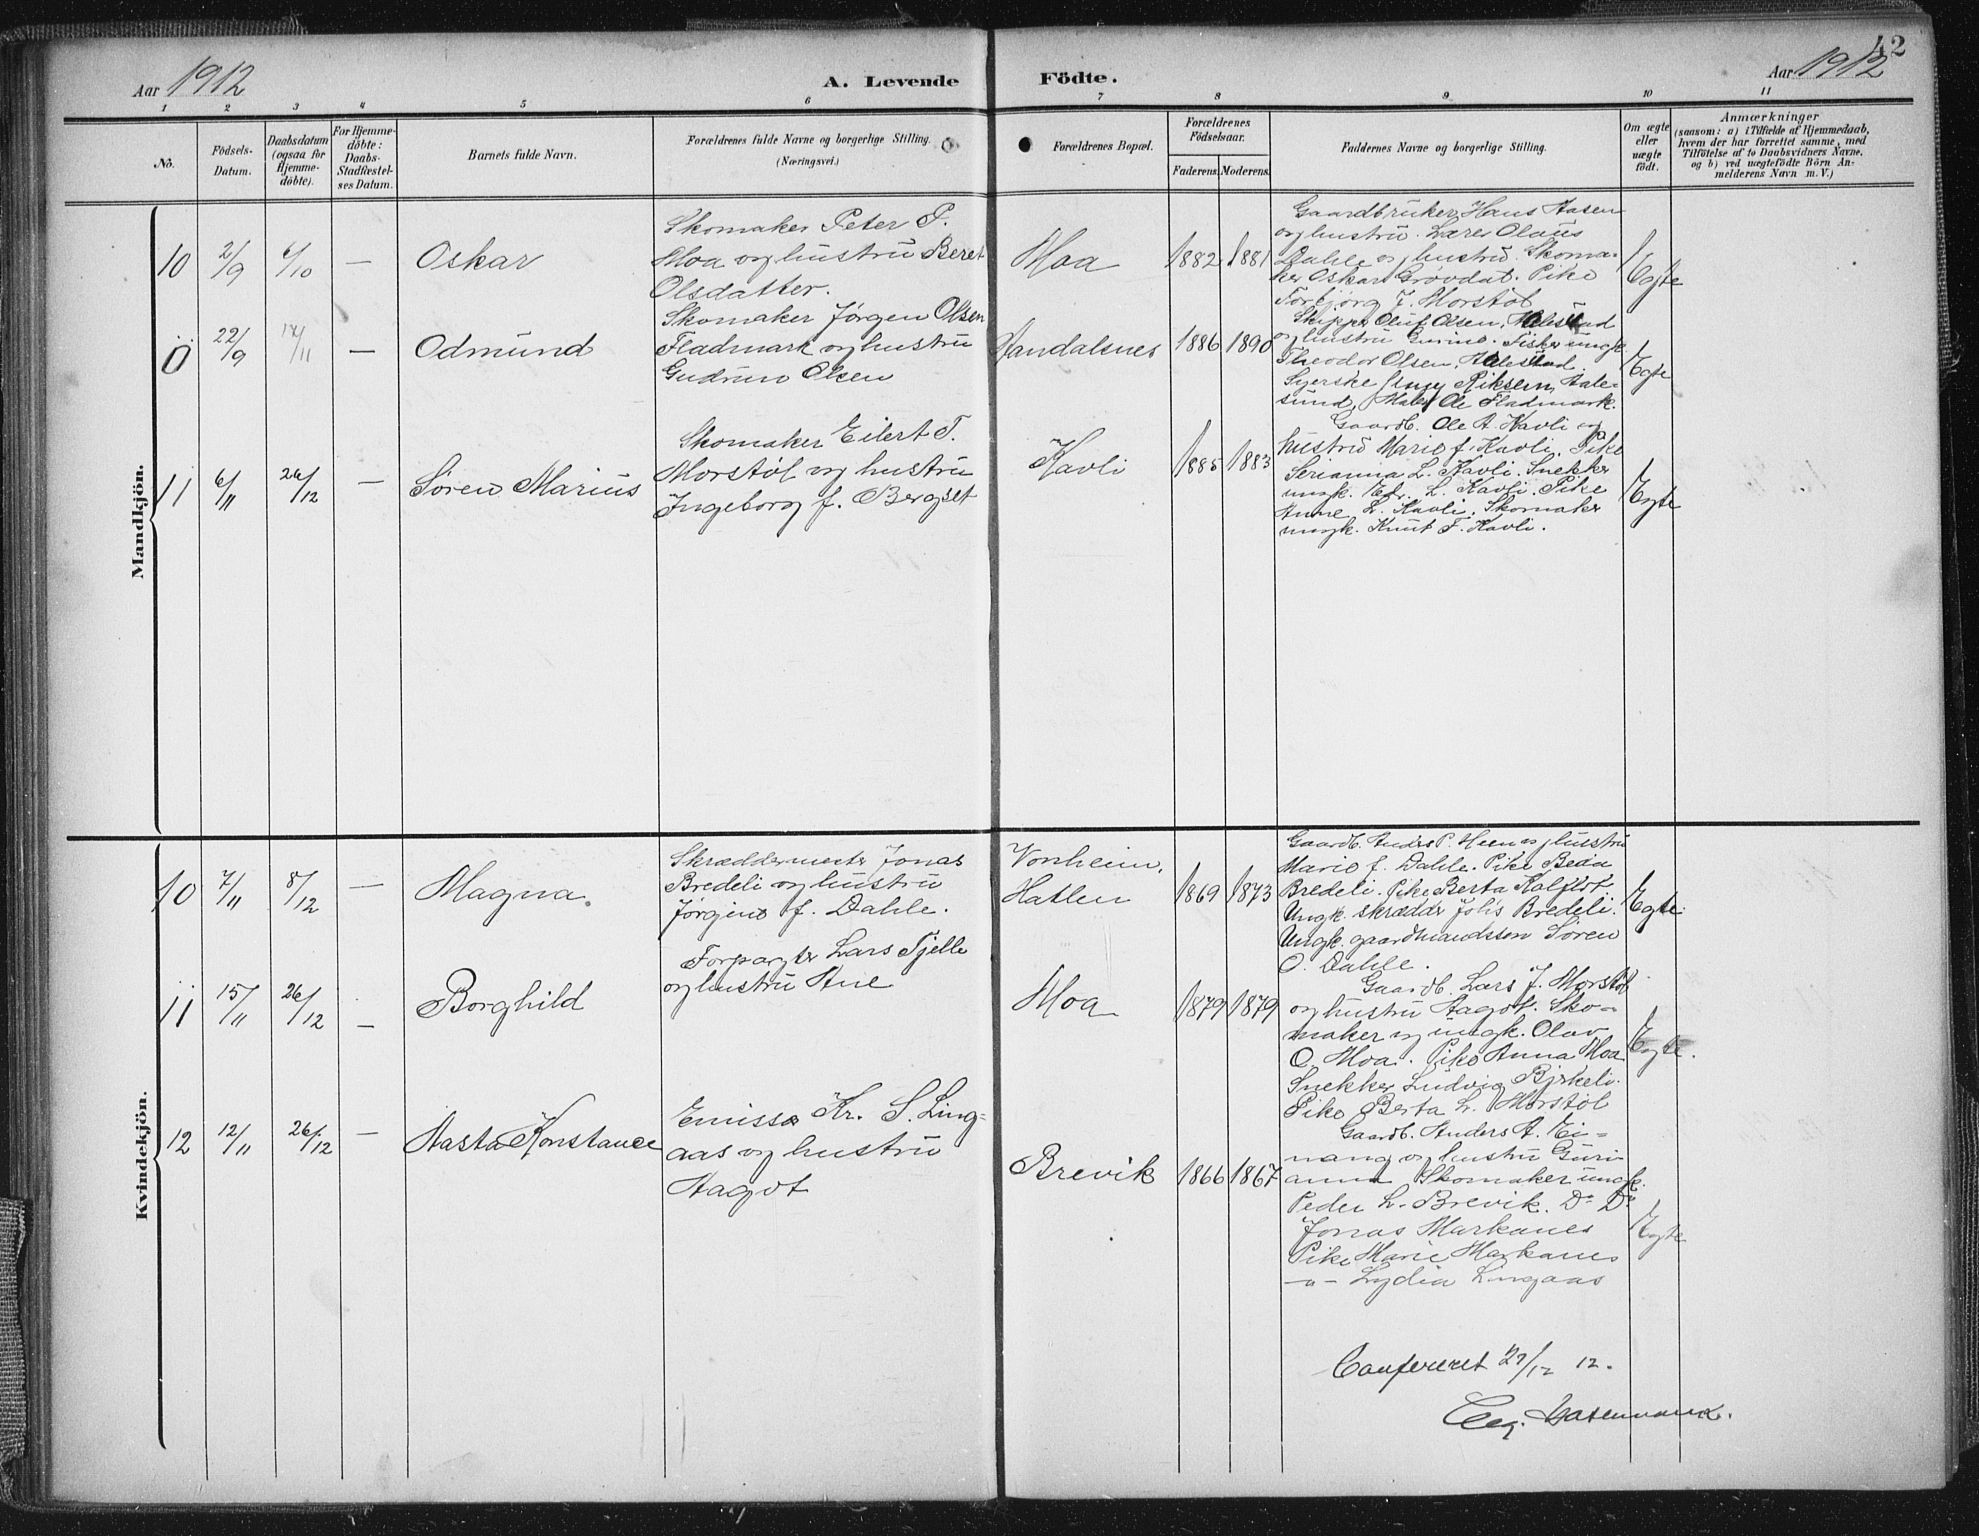 42
Aar 1912
A. Levende Födte.
Aar 1912
1 2 3 4 5 6 7 8 9 10 11
No.
Födsels-
Datum.
Daabsdatum
(ogsaa for
Hjemme-
döbte).
For Hjemme-
döbte:
Daabs-
Stadfæstel-
ses Datum.
Barnets fulde Navn.
Forældrenes fulde Navne og borgerlige Stilling.
(Næringsvei.)
Forældrenes Bopæl.
Forældrenes
Födselsaar.
Faderens. Moderens.
Faddernes Navne og borgerlige Stilling.
Om ægte
eller
uægte
födt.
Anmærkninger
(saasom: a) i Tilfælde af Hjemmedaab,
hvem der har forrettet samme, med
Tilföielse af to Daabsvidners Navne,
og b) ved uægtefödte Börn An-
melderens Navn m. V.)
Mandkjön.
10 2/9 6/10 — Oskar
Skomaker Peter P.
Moa og hustru Beret
Olsdatter.
Moa 1882 1881
Gaardbruker Hans Aasen
og hustru. Lærer Olaus
Dahle og hustru. Skoma-
ker Oskar Grøvdal. Pike
Torbjørg J. Morstøl
Egte
0 22/9 17/11 — Odmund
Skomaker Jørgen Olsen
Fladmark og hustru
Gudrun Olsen
Aandalsnes 1886 1890
Skipper Oluf Olsen, Aalesund
og hustru Gurine. Fisker ungk.
Theodor Olsen, Aalesund.
Syerske Riksem, Aale-
sund, Maler Ole Fladmark.
Egte
11 6/11 26/12 — Søren Marius
Skomaker Eilert T.
Morstøl og hustru
Ingeborg f. Bergset
Kavli 1885 1883
Gaardb. Ole A. Kavli og
hustru Marie f. Kavli. Pike
Serianna L. Kavli. Snekker
ungk. Edv. L. Kavli. Pike
Anne L. Kavli. Skomaker
ungk. Knut T. Kavli.
Egte
Kvindekjön.
10 7/11 8/12 — Magna.
Skræddermester Jonas
Bredeli og hustru
Jørgine f. Dahle.
Vonheim,
Hatlen 1869 1873
Gaardb. Anders P. Heen og hustru
Marie f. Dahle. Pike Beda
Bredeli. Pike Berta Kalflot.
Ungk. skrædder Johs Bredeli.
Ungk. gaardmandssøn Søren
O. Dahle.
Egte.
11 15/11 26/12 — Borghild
Forpagter Lars Tjelle
og hustru Ane
Moa 1879 1879
Gaardb. Lars J. Morstøl
og hustru Aagot. Sko-
maker og ungk. Olav
O. Moa. Pike Anna Moa
Snekker Ludvig Bjrkeli.
Pike Berta L. Morstøl
Egte.
12 12/11 26/12 — Aasta Konstance
Emissær Kr. S. Ling-
aas og hustru
Aagot
Brevik 1866 1867
Gaardb. Anders A. Ei-
nang og hustru Guri-
anna Skomaker ungk.
Peder L. Brevik. Do Do
Jonas Markanes
Pike Marie Markanes
—"— Lydia Lingaas
Egte
Confereret 27/12 12.